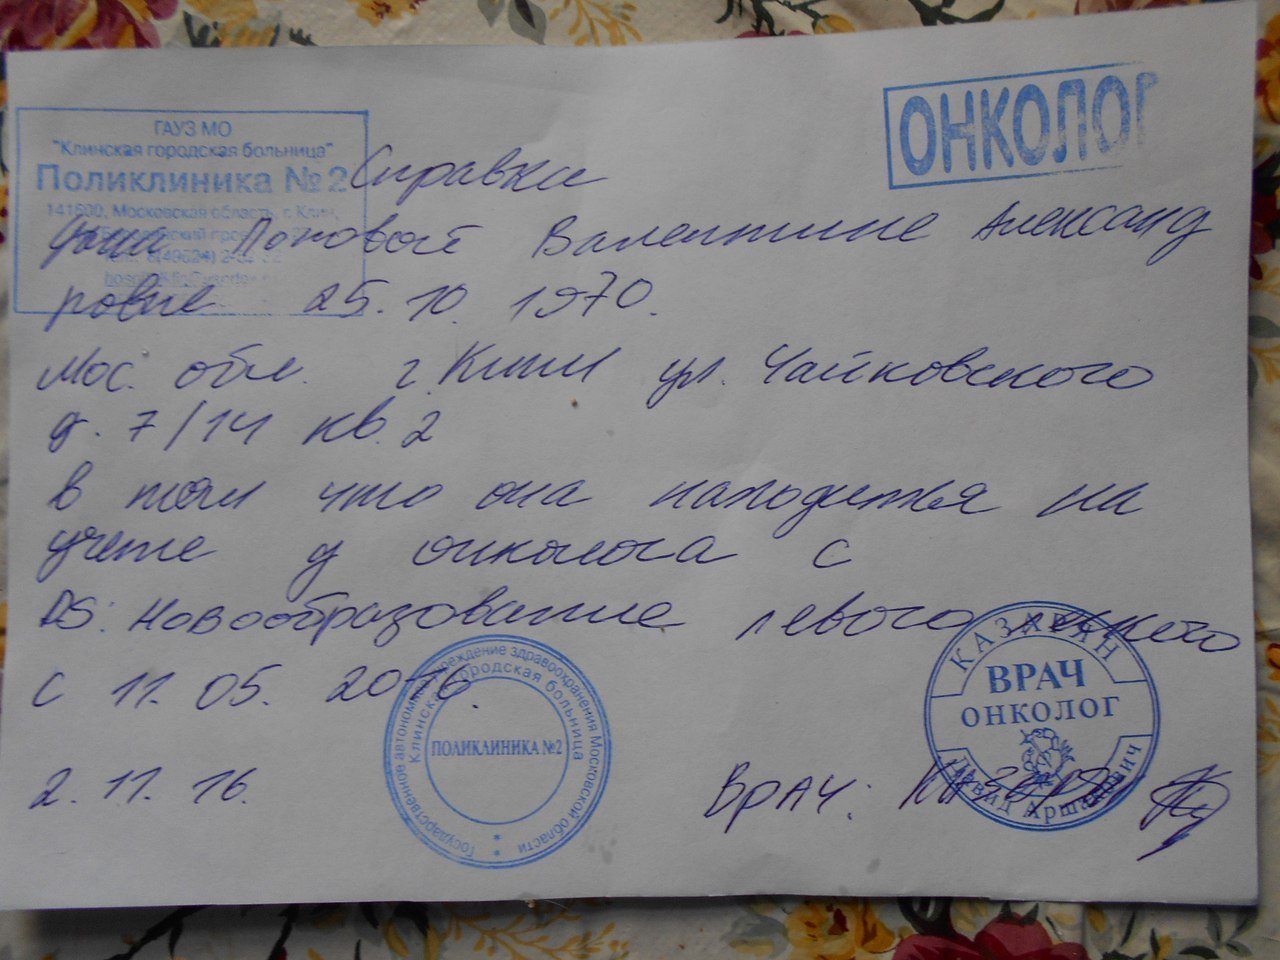 ГАУЗ МО
"Клинская городская больница"
Поликлиника № 2
141600, Московская область, г. Клин,
ОНКОЛОГ
Справка
дана Поповой Валентине Александ
ровне 25.10.1970.
Мос. обл. г. Клин ул. Чайковского
д. 7/14 кв. 2
в том что она находится на
учете у онколога с
DS: Новообразование левого легкого
с 11.05.2016.
2.11.16.
Врач:
Государственное автономное учреждение здравоохранения Московской области
Клинская городская больница
ПОЛИКЛИНИКА №2
КАЗАРЯН
ВРАЧ
ОНКОЛОГ
Давид Аршакович